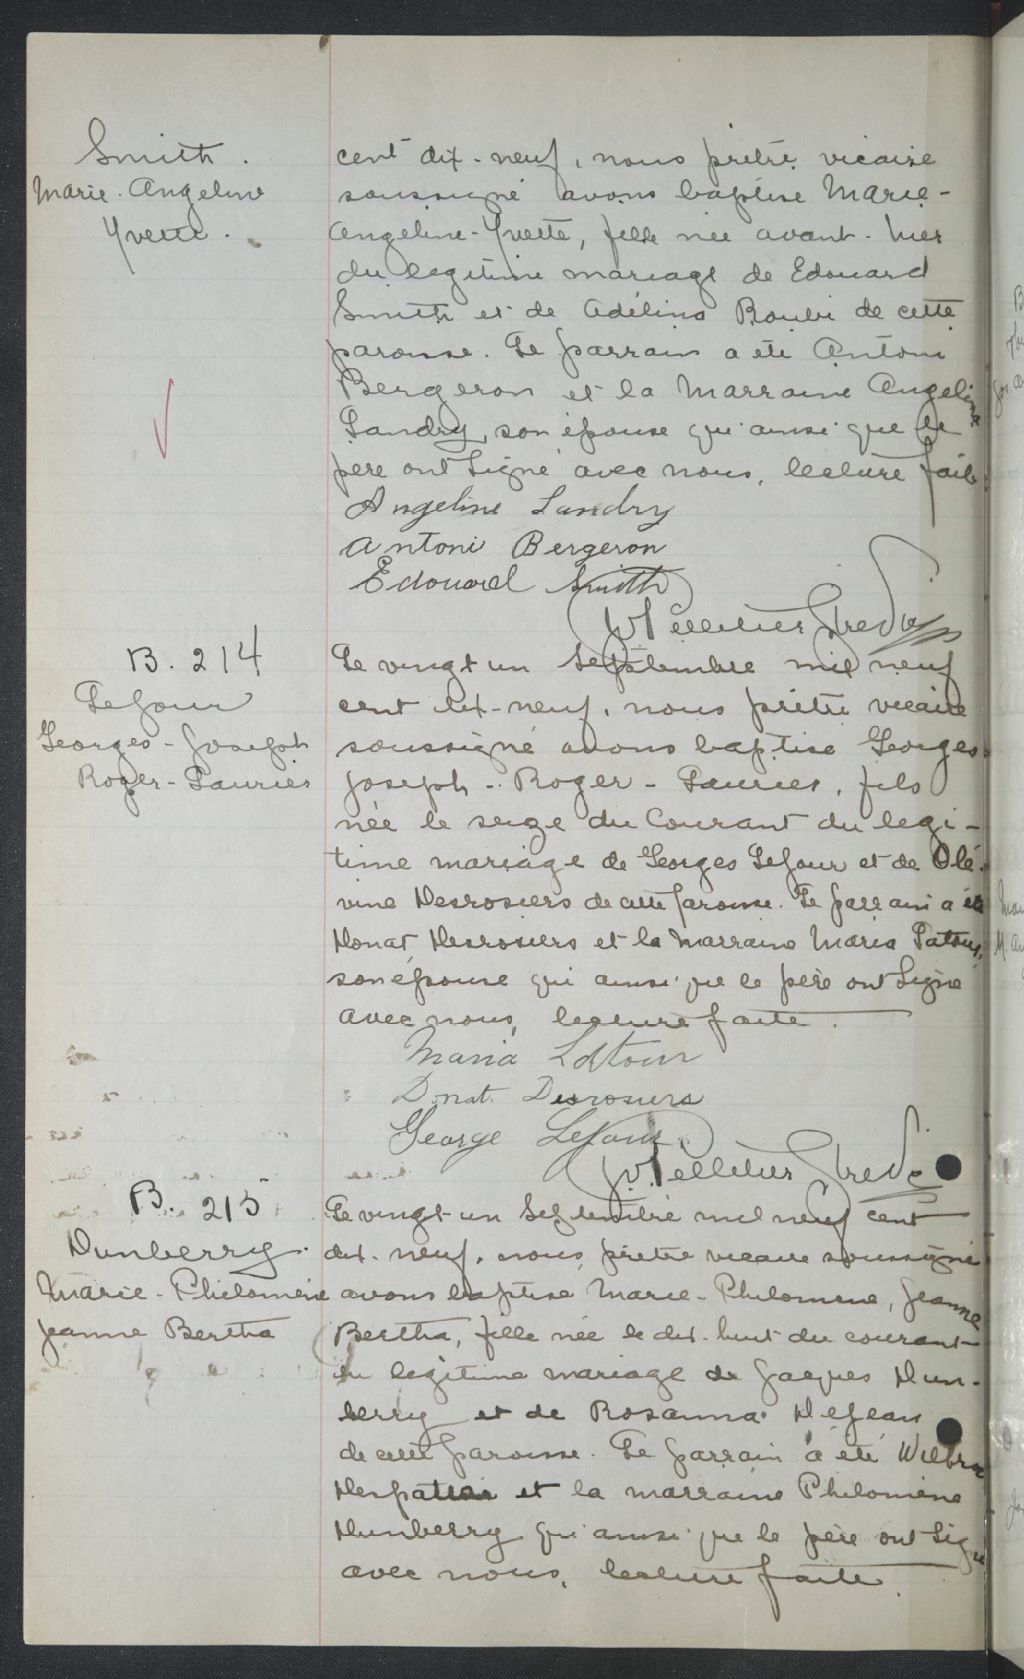 Smith.
Marie-Angeline
Yvette.
cent dix-neuf, nous prêtre vicaire
soussigné avons baptise Marie-
Angeline-Yvette, fille née avant-hier
du legitime mariage de Edouard
Smith et de Adélina de cette
paroisse. Le parrain a été Antoni
Bergeron et la Marraine Angelina
Landry, son épouse qui ainsi que le
père ont signé avec nous, lecture faite
Angeline Landry
Antoni Bergeron
Edouard Smith
Pelletier Ptre Vic
B. 214
LeJour
Georges-Joseph
Roger-Laurier
Le vingt un Septembre mil neuf
cent dix-neuf, nous prêtre vicaire
soussigné avons baptise Georges
Joseph-Roger-Laurier, fils
née le seize du Courant du legi-
time mariage de Georges LeJour et de Olé-
vine Desrosiers de cette paroisse. Le parrain a été
Donat Desrosiers et la Marraine Maria Latour,
son épouse qui ainsi que le père ont signé
avec nous, lecture faite.
Maria Latour
Donat Desrosiers
George LeJour
Pelletier Ptre Vic
B. 215
Dunberry.
Marie-Philomène
Jeanne Bertha
Le vingt-un Septembre mil neuf cent
dix-neuf, nous, prêtre vicaire soussigné
avons baptise Marie-Philomene, Jeanne
Bertha, fille née le dix-huit du courant
du legitime mariage de Jacques Dun-
berry et de Rosanna DeJean
de cette paroisse. Le parrain a été
et la marraine Philomène
Dunberry qui ainsi que le père ont signé
avec nous, lecture faite.